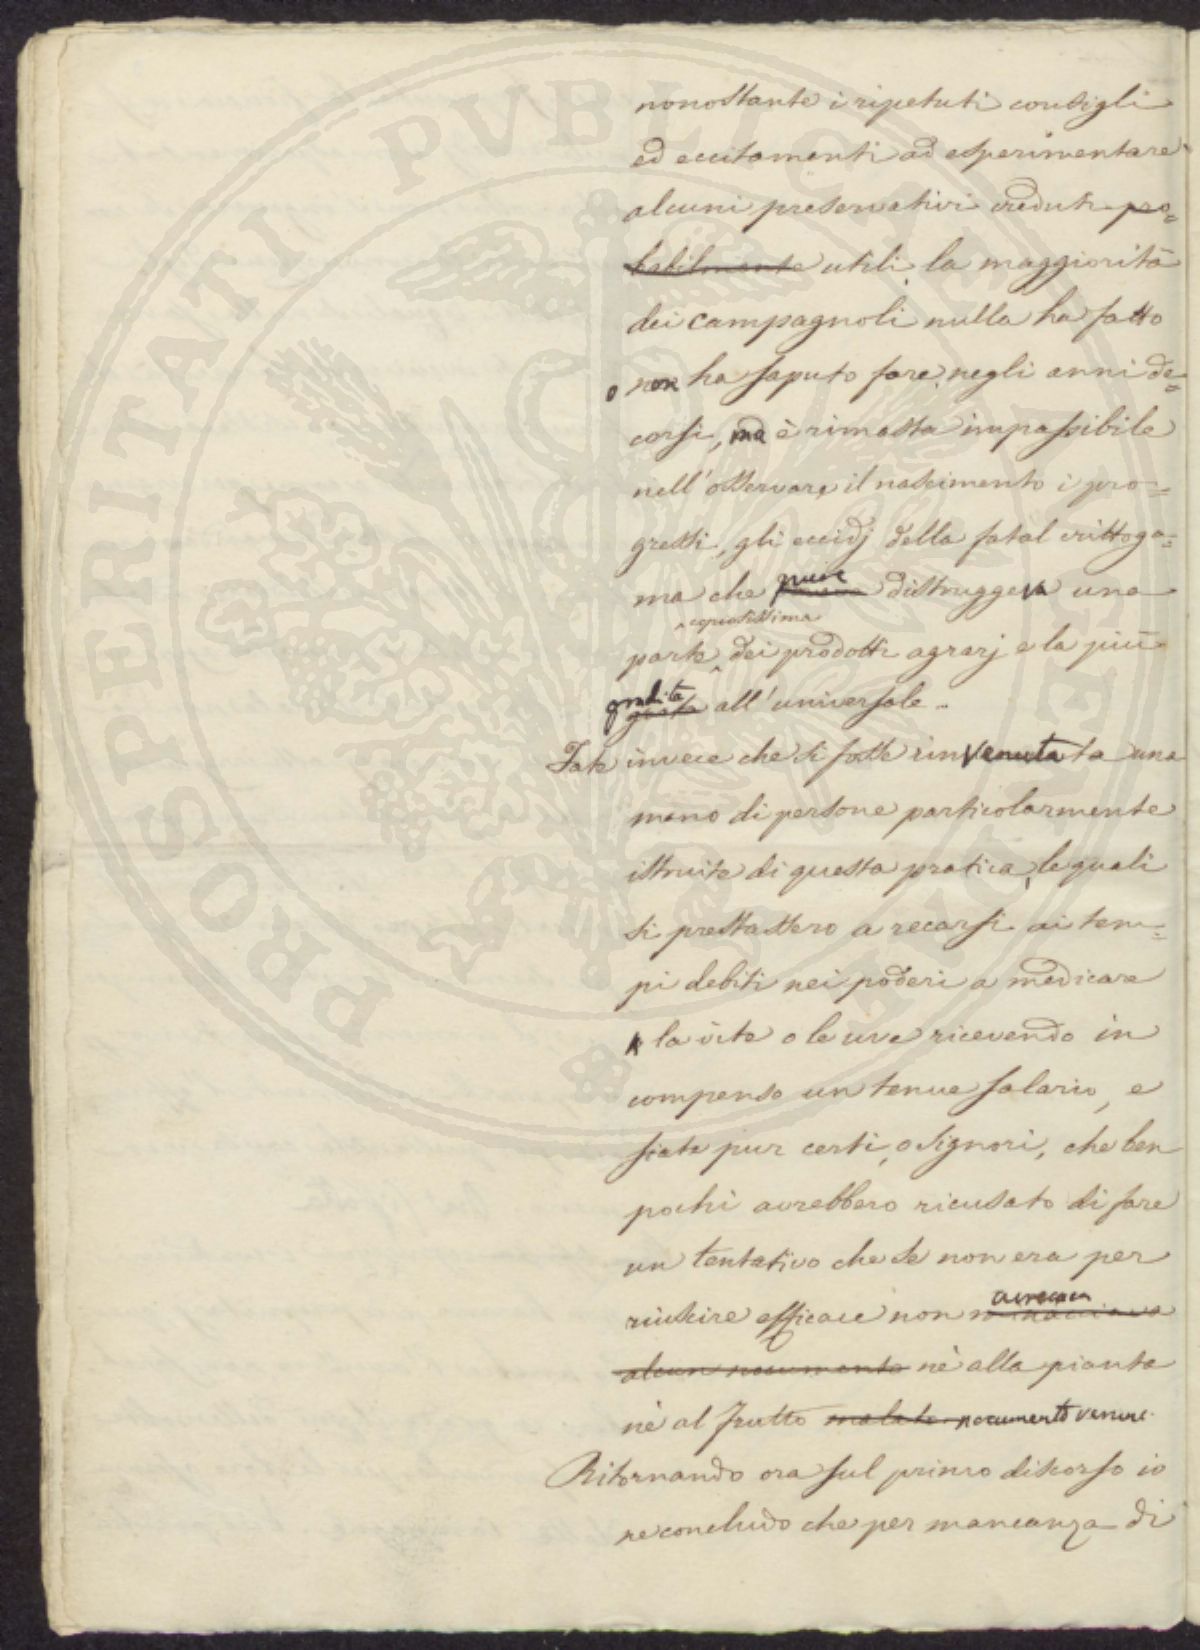 nonostante i ripetuti consigli
ed eccitamenti ad esperimentare
alcuni preservativi creduti pro=
babilmente utili, la maggiorità
dei campagnoli nulla ha fatto
o non ha saputo fare, negli anni de=
corsi, ma è rimasta impassibile
nell'osservare il nascimento i pro=
gressi, gli eccidj della fatal crittoga=
ma che pure distruggeva una
copiosissima
parte dei prodotti agrarj e la più
gradita all'universale.
Fate invece che si fosse rinvenuta ta una
mano di persone particolarmente
istruite di questa pratica, le quali
si prestassero a recarsi ai tem=
pi debiti nei poderi a medicare
la vite o le uve ricevendo in
compenso un tenue salario, e
siate pur certi, o Signori, che ben
pochi avrebbero ricusato di fare
un tentativo che se non era per
arrecava
riuscire efficace non minacciava
alcun nocumento nè alla pianta
nè al frutto malato nocumento venire.
Ritornando ora sul primo discorso io
ne concludo che per mancanza di
PROSPERITATI PVBLICAE